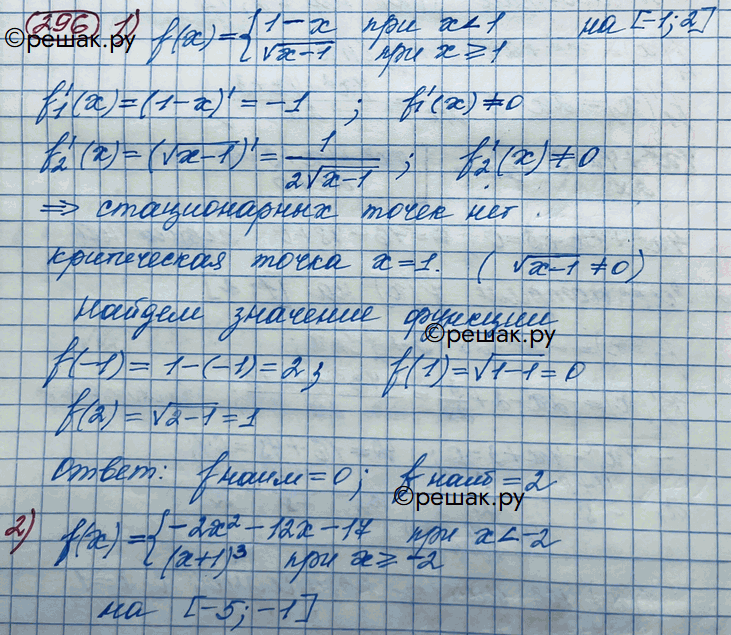 296 1) f(x) = { 1 - x при x < 1 на [-1; 2]
√(x-1) при x ⩾ 1
©решак.ру ©решак.ру
f₁'(x) = (1-x)' = -1 ; f₁'(x) ≠ 0
f₂'(x) = (√(x-1))' = 1/(2√(x-1)) ; f₂'(x) ≠ 0
⇒ стационарных точек нет.
критическая точка x = 1. ( √(x-1) ≠ 0)
Найдем значение функции
©решак.ру
f(-1) = 1-(-1) = 2; f(1) = √(1-1) = 0
f(2) = √(2-1) = 1
Ответ: f наим = 0; f наиб = 2
©решак.ру
2) f(x) = { -2x² - 12x - 17 при x < -2
(x+1)³ при x ⩾ -2
на [-5; -1]